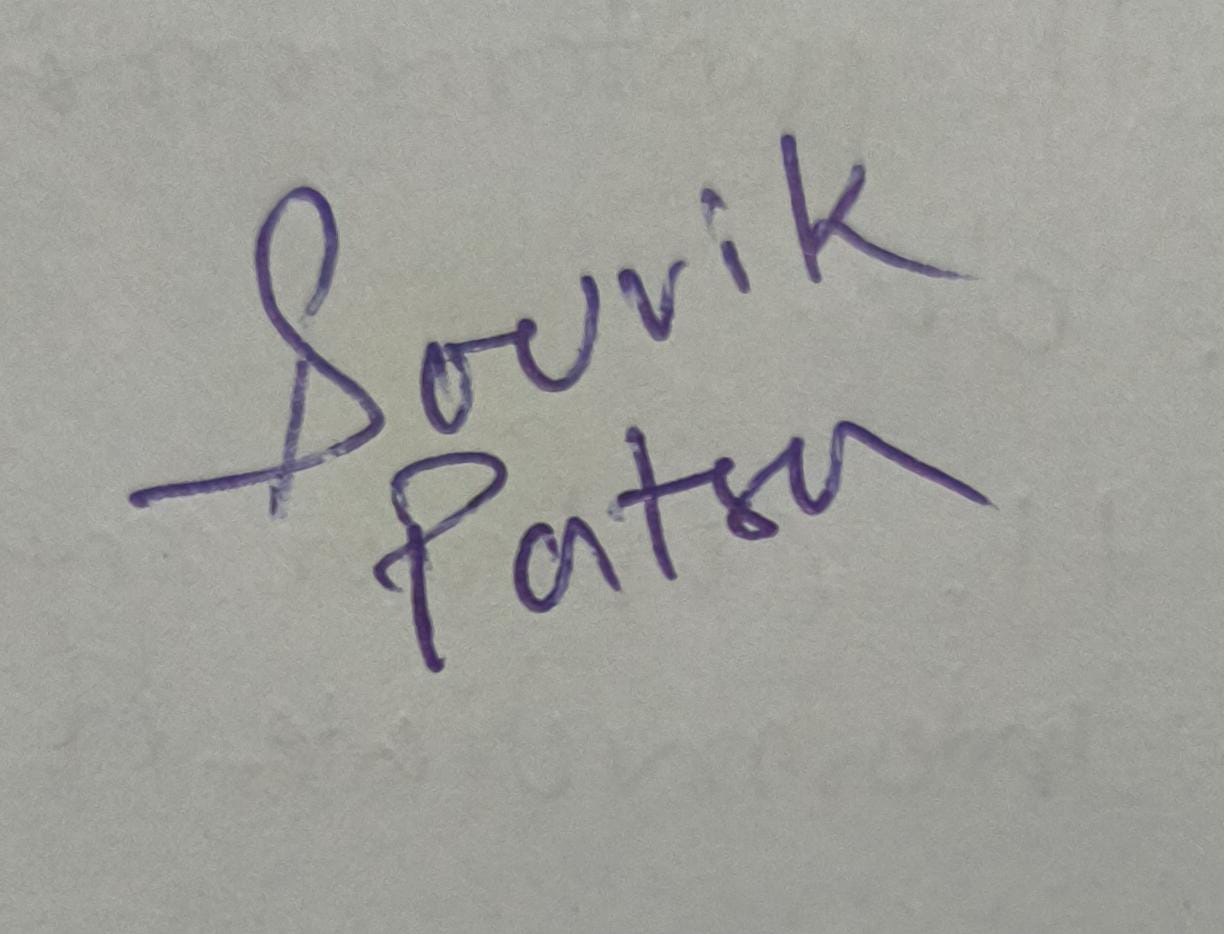 Souvik
Patsa